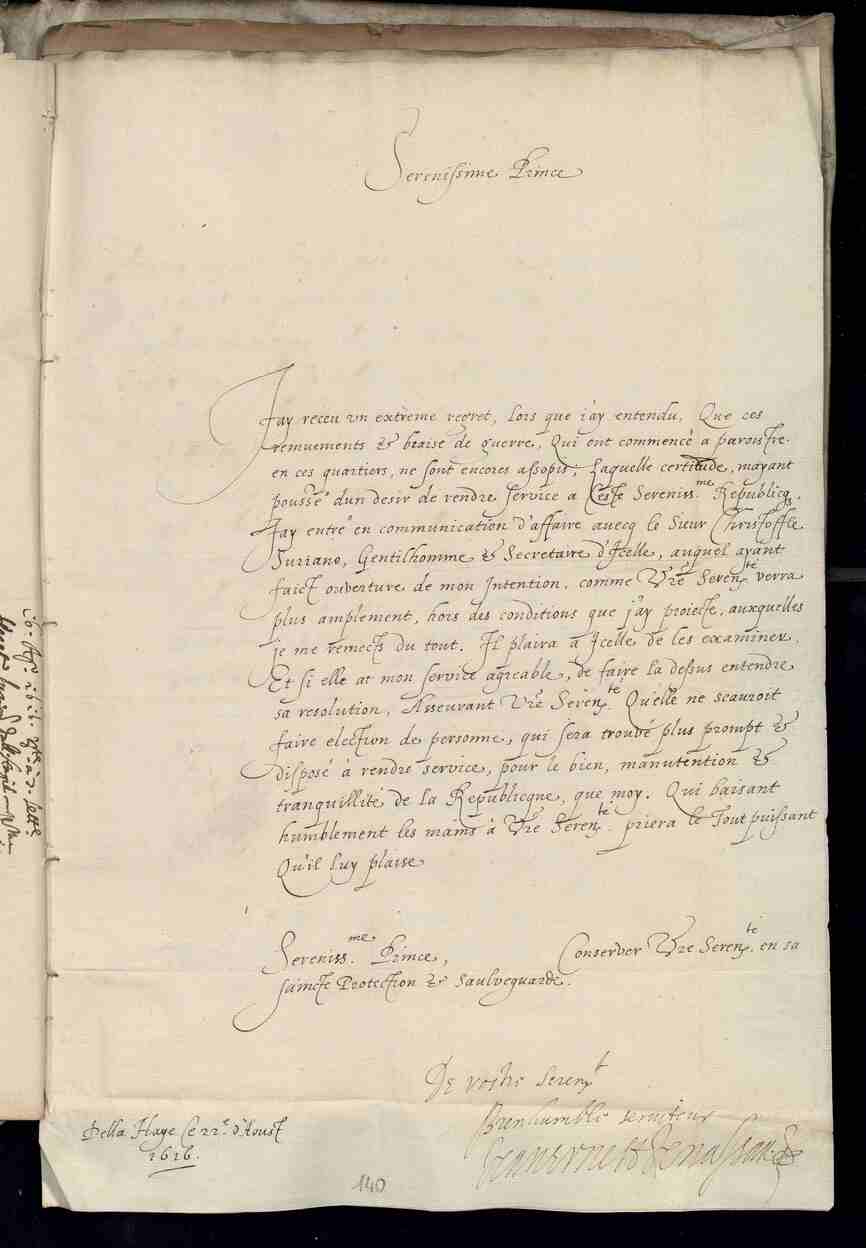 Serenissime Prince
J'ay receu un extrème regret, Lors que j'ay entendu, Que ces
remuements & braise de guerre, Qui ont commencé a paroistre
en ces quartiers, ne sont encores assopis, Laquelle certitude, m'ayant
poussé d'un desir de rendre service a Ceste Sereniss.me Republicq.
Jay entré en communication d'affaire avecq le Sieur Christoffle
Suriano, Gentilhomme & Secretaire d'Icelle, auquel ayant
faict ouverture de mon Intention, comme Vre Seren.te verra
plus amplement, hors des conditions que j'ay proiecte, auxquelles
je me remects du tout. Il plaira a Icelle de les examiner,
Et si elle at mon service agreable, de faire la dessus entendre
sa resolution, Asseurant Vre Seren.te Qu'elle ne scauroit
faire election de personne, qui sera trouvé plus prompt &
disposé à rendre service, pour le bien, manutention &
tranquillité de la Republicque, que moy. Qui baisant
humblement les mains à Vre Seren.te priera le Tout puissant
Qu'il luy plaise
Sereniss.me Prince, Conserver Vre Seren.te en sa
saincte Protection & Saulveguarde.
De vostre Seren.t
Bien humble serviteur
Jean Ernest de Nassau
Della Haye Ce 22e d'Aoust
1616.
140